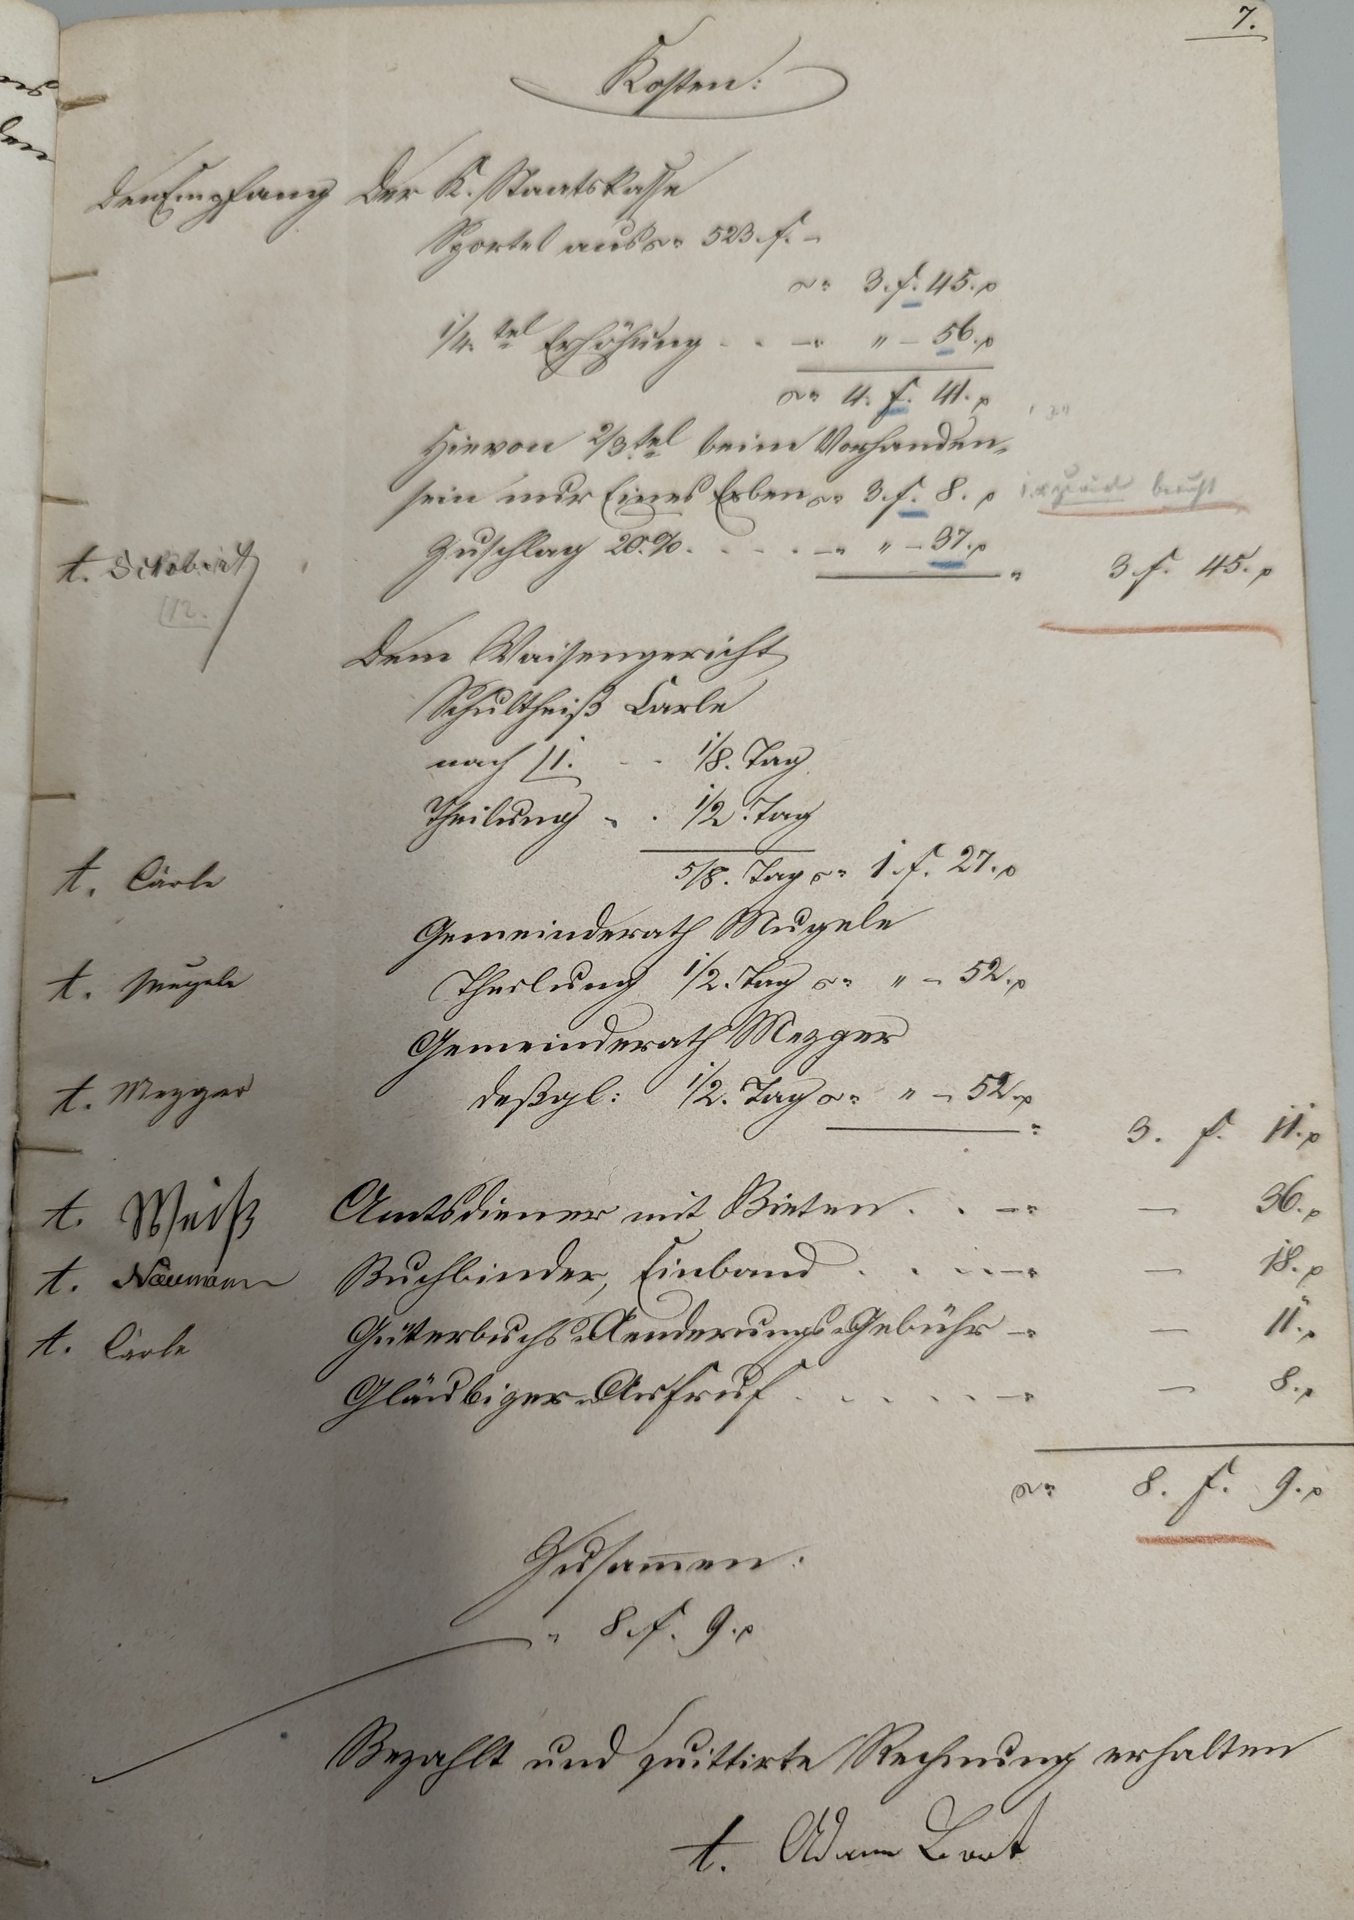 7.
Kosten:
Den Empfang Der K. Staatskasse
Sportel aus 523. f. –
3. f. 45. x
1/4. tel Erhöhung . . – " – 56. x
4. f. 41. x
Hievon 2/3.tel beim Vorhanden-
sein nur Eines Erben 3. f. 8. x
t. Zuschlag 20.% . . . . – " – 37. x 3 f. 45. x
Dem Waisengericht
Schultheiß Carle
nach . . 1/8. Tag
Theilung . . 1/2. Tag
t. Cärle 5/8. Tag 1 f. 27. x
Gemeinderath Mugele
t. Mugele Theilung 1/2. Tag " – 52. x
Gemeinderath Mezger
t. Mezger deßgl: 1/2. Tag " – 52. x
3. f. 11. x
t. Weiß Amtsdiener mit Bieten . . – – 36. x
t. Naumann Buchbinder, Einband . . . . – – 18. x
t. Cärle Güterbuchs-Aenderungs-Gebühr – – 11. x
Gläubiger-Aufruf . . . . . . – – 8. x
8. f. 9. x
Zusam̅en:
8 f. 9. x
Bezahlt und quittirte Rechnung erhalten
t. Adam